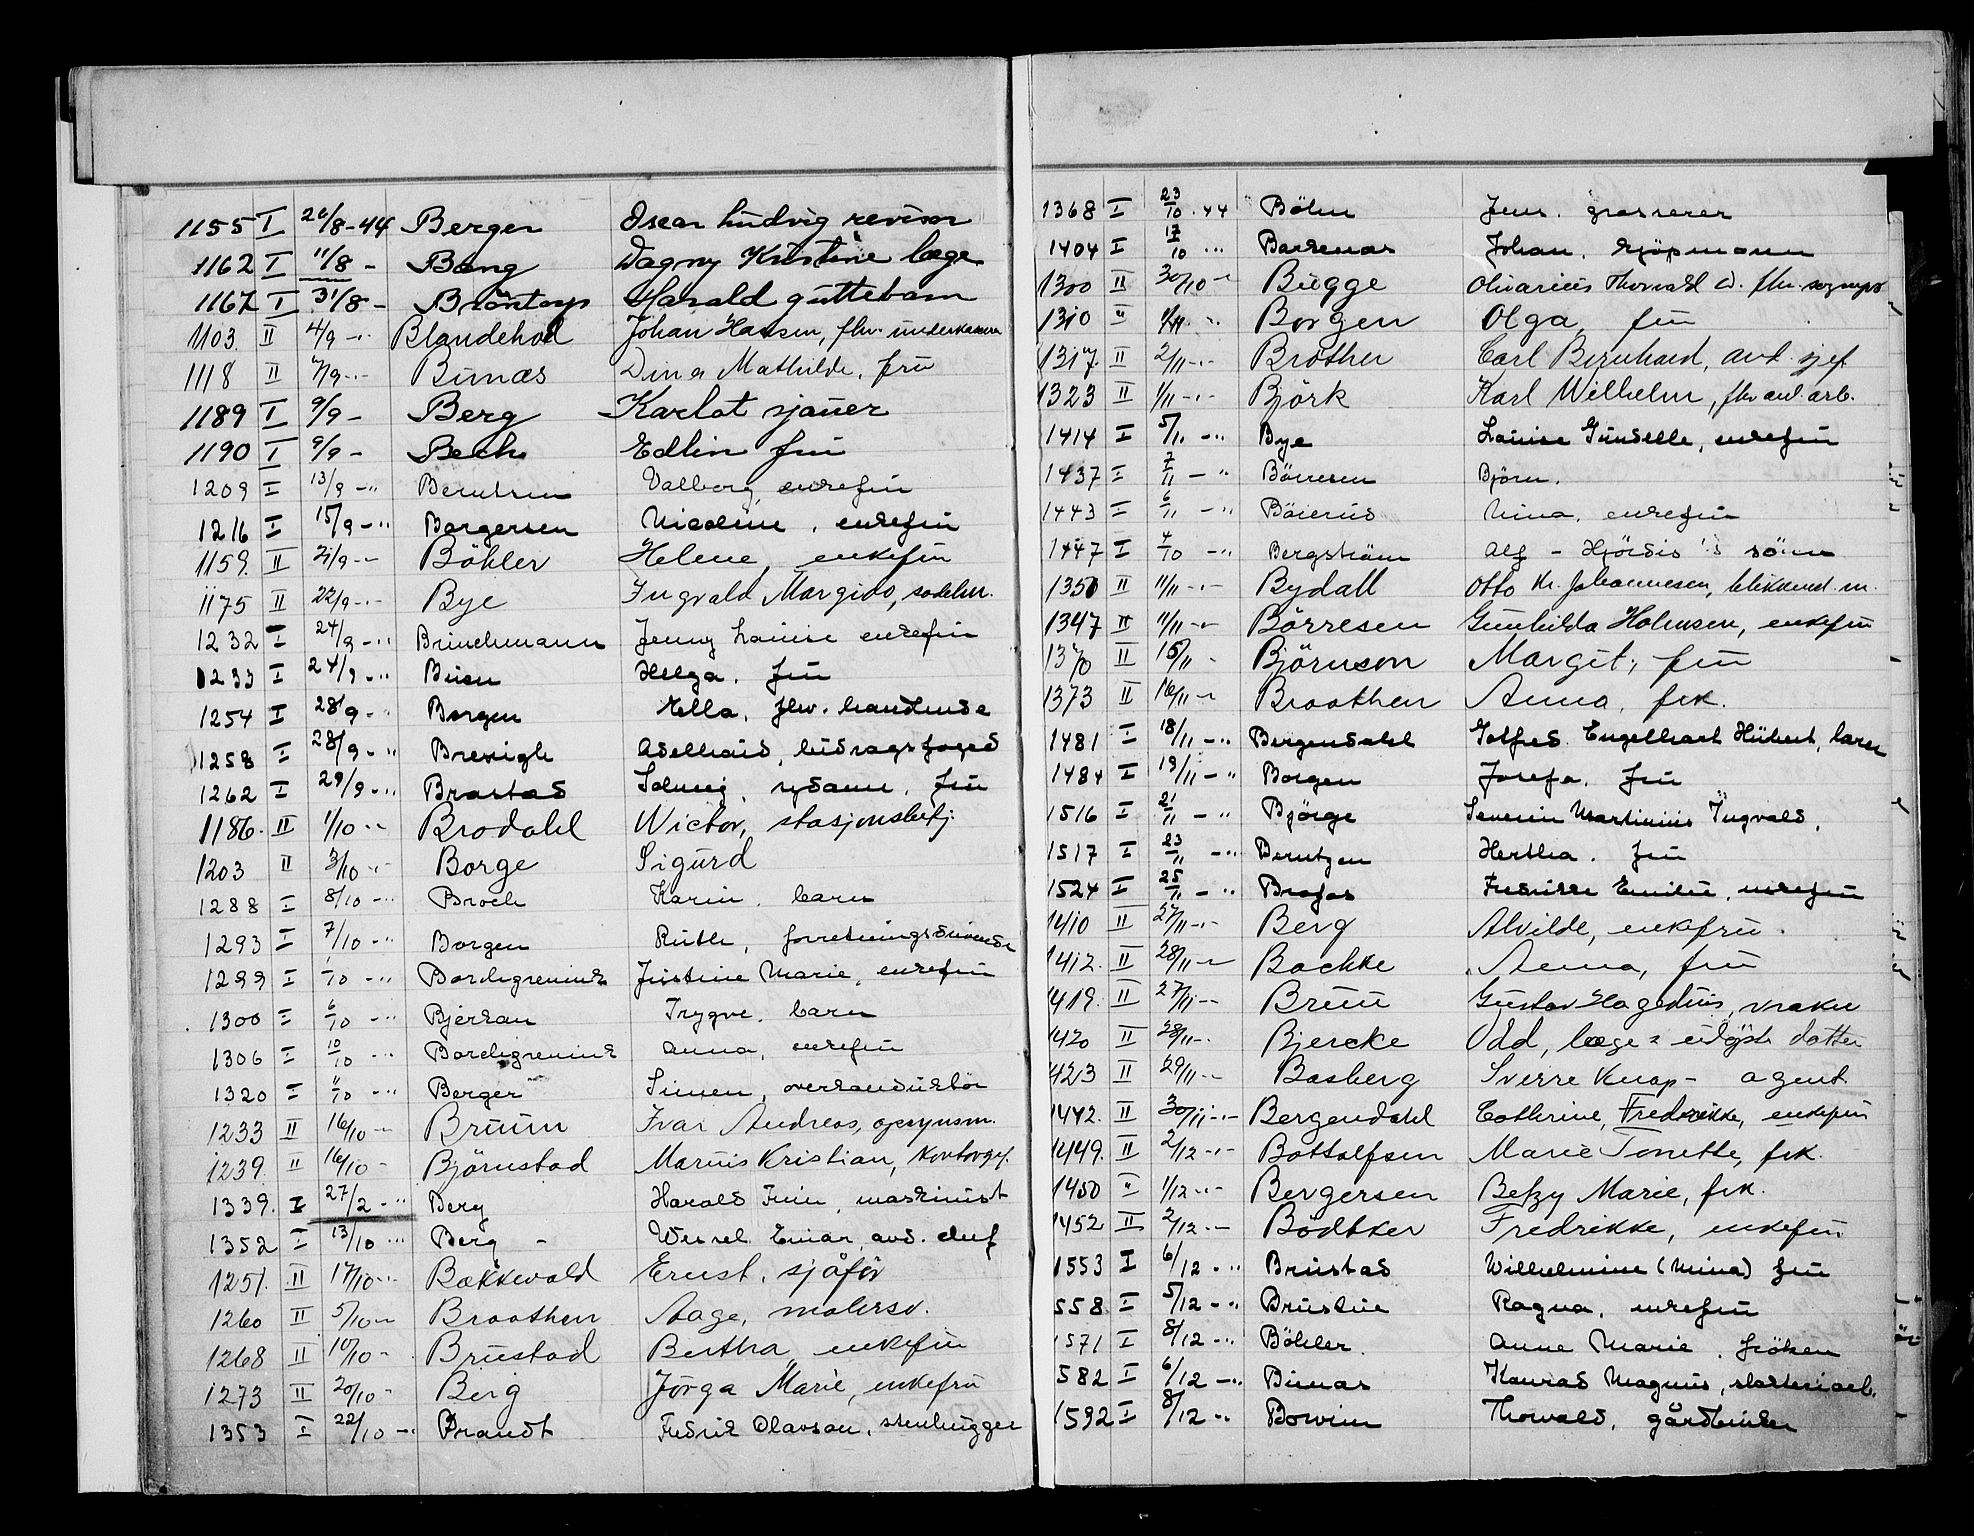 1155 I 26/8-44 Berger Oscar Ludvig revisor
1162 I 11/8 - Bang Dagny Kristine læge
1167 I 31/8 - Bröntorp Harald guttebarn
1103. II 4/9 -" Blandehoel Johan Hansen, fhv.
1118 II 7/9 -" Bunæs Dina Mathilde, fru
1189 I 9/9 - Berg Karlot sjauer
1190 I 9/9 - Bech Edlin fru
1209 I 13/9 -" Berntsen Valborg, enkefru
1216 I 15/9 -" Borgersen Nicoline, enkefru
1159. II 21/9 -" Böhler Helene, enkefru
1175 II 22/9 -" Bye Ingvald Margido,
1232 I 24/9 -" Brinchmann Jenny Louise enkefru
1233 I 24/9 -" Buen Helga. fru
1254 I 28/9 -" Borgen Hella, fhv. handlende
1258 I 28/9 -" Brevigh Adelhaid, bidragsfoged
1262 I 29/9 -" Brastad Solveig, fru
1186. II 1/10 -" Brodahl Wictor, stasjonsbetj.
1203 II 3/10 -" Borge Sigurd
1288 I 8/10 -" Broch Karin. barn
1293 I 7/10 -" Borgen Ruth, forretningsdrivende
1299 I /10 -" Bordegrenink Justine Marie, enkefru
1300 I 6/10 -" Bjerkan Trygve. barn
1306 I 10/10 -" Bordegrenink Anna, enkefru
1320 I 11/10 -" Berger Simen, overkonduktör
1233 II 16/10 -" Bruun Ivar Andreas, opsynsm.
1239. II 16/10 - Björnstad Marius Kristian, kontorsjef.
1339. I 27/2 -" Berg Harald Finn, maskinist
1352 I 13/10 -" Berg - Wessel Einar, avd. chef
1251. II 17/10 -" Bækkevold Ernst, sjåför
1260 II 5/10 -" Braathen Aage, malersv.
1268 II 10/10 - Brustad Bertha, enkefru
1273 II 20/10 - Berg Jörga Marie, enkefru
1353 I 22/10 -" Brandt Fredrik Olavson, stenhugger
1368 I 23/10 . 44 Böhn Jens. grosserer
1404 I 17/10 " Johan, kjöpmann
1300 II 30/10 -" Bugge Olivarius Thorvald D. fhv. sogneps
1310 " 1/11. -" Borgen Olga, fru
1317. II 2/11 -" Brother Carl Bernhard, avd. sjef
1323 II 1/11 -" Björk Karl Wilhelm, fhv. anl. arb.
1414 I 5/11 -" Bye Louise Gunelle, enkefru
1437 I 7/11 -" Börresen Björn.
1443 I 6/11 -" Nina, enkefru
1447 I 4/10 -" Bergström Alf - Hjördis's sönn
1350 II 11/11 -" Bydall Otto Kr. Johannesen, blikkensl. m.
1347 II 11/11 -" Börresen Gunhilda Holmsen, enkefru
1370 II 15/11 - Björnson Margit, fru
1373 II 16/11 -" Braathen Anna, frk.
1481 I 18/11 -" Bergendahl Gotfred Engelhart Hubert, barn
1484 I 19/11 -" Borgen Josefa. fru
1516 I 21/11 -" Björge Severin Martinius Ingvald,
1517 I 23/11 -" Berntzen Hertha. fru
1524 I 25/11 -" Brofos Fredrikke Emilie, enkefru
1410 II 27/11 -" Berg Alvilde, enkefru.
1412. II 28/11 -" Bachke Anna, fru
1419. II 27/11 -" Bruu Gustav Hagelius, vraker
1420 II 28/11 -" Bjercke Odd, læges datter
423 II 29/11 -" Basberg Sverre Knap - agent
1442. II 30/11 -" Bergendahl Cathrine, Fredrikke, enkefru
1449. II 2/12 -" Bottolfsen Marie Tonette, frk.
1450 " 1/12 -" Bergersen Betzy Marie, frk.
1452 II 2/12 -" Bödtker Fredrikke, enkefru
1553 I 6/12 -" Brustad Wilhelmine (Mina) fru
558 I 5/12 -" Brustine Ragna, enkefru
1571 I 8/12 -" Böhler. Anne Marie, fröken
582 I 6/12 -" Bunæs Konrad Magnus, slakteriarb.
1592 I 8/12 -" Bowim Thorvald, gårdbruker